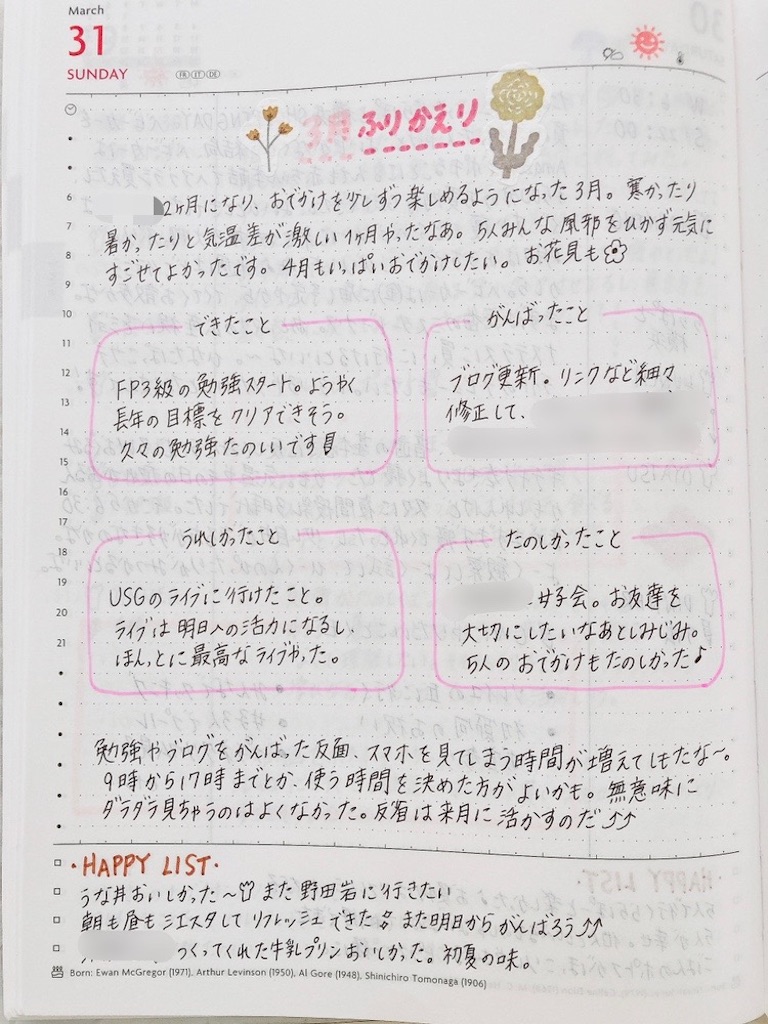 March
31
SUNDAY
3月 ふりかえり
2ヶ月になり、おでかけを少しずつ楽しめるようになった3月。寒かったり
暑かったりと気温差が激しい1ヶ月やったなあ。5人みんな風邪をひかず元気に
すごせてよかったです。4月もいっぱいおでかけしたい。お花見も
6
7
8
9
10
できたこと
がんばったこと
11
12
13
14
15
FP3級の勉強スタート。ようやく
長年の目標をクリアできそう。
久々の勉強たのしいです
ブログ更新。リンクなど細々
修正して、
16
17
うれしかったこと
たのしかったこと
18
19
20
21
USGのライブに行けたこと。
ライブは明日への活力になるし、
ほんっとに最高なライブやった。
女子会。お友達を
大切にしたいなあとしみじみ。
5人のおでかけもたのしかった♪
勉強やブログをがんばった反面、スマホを見てしまう時間が増えてしもたな〜。
9時から17時までとか、使う時間を決めた方がよいかも。無意味に
ダラダラ見ちゃうのはよくなかった。反省は来月に活かすのだ⤴⤴
・HAPPY LIST・
うな丼おいしかった〜♡ また野田岩に行きたい
朝も昼もシエスタしてリフレッシュできた また明日からがんばろう⤴⤴
つくってくれた牛乳プリンおいしかった。初夏の味。
Born: Ewan McGregor (1971), Arthur Levinson (1950), Al Gore (1948), Shinichiro Tomonaga (1906)